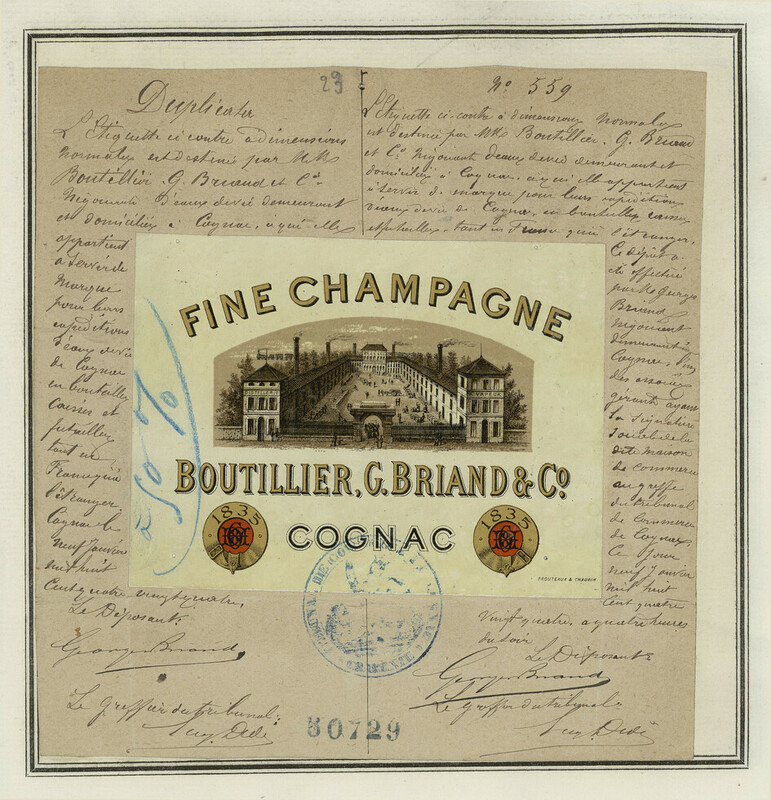 23
Duplicata
L'Etiquette ci contre a dimensions
Normales est destinée par MM
Boutellier. G. Briand et Cie
Négociants D'eaux devie demeurant
et domiciliés à Cognac, à qui elle
appartient
à servir de
Marque
pour leurs
expéditions
D'eaux devie
de Cognac
en bouteilles
caisses et
futailles
tant en
France qu'à
l'étranger
Cognac le
neuf Janvier
mil huit
Cent quatre vingt quatre,
Le Déposant:
Georges Briand
Le Greffier du tribunal:
Eug. Dedé
No 559
L'Etiquette ci contre à dimensions Normales
est destinée par MM Boutillier. G. Briand
et Cie Négociants D'eaux devie demeurant et
domiciliés à Cognac, a qui elle appartient
à servir de marque pour leurs expéditions
D'eaux devie de Cognac en bouteilles caisses
et futailles, tant en France qu'à l'étranger.
Ce dépôt a
été effectué
par Mr Georges
Briand
Négociant
demeurant à
Cognac, l'un
des associés
gérants ayant
la signature
sociale de la
dite maison
de commerce
au greffe
du tribunal
de Commerce
de Cognac,
Ce jour
neuf Janvier
mil huit
cent quatre
Vingt quatre, a quatre heures
du soir
Le Déposant:
Georges Briand
Le Greffier du tribunal:
Eug. Dedé
FINE CHAMPAGNE
BOUTILLIER, G. BRIAND & Co
1835
COGNAC
1835
B B
PROUTEAUX & CHAUVIN
50 %
TRIBUNAL DE COMMERCE
CHARENTE
50729